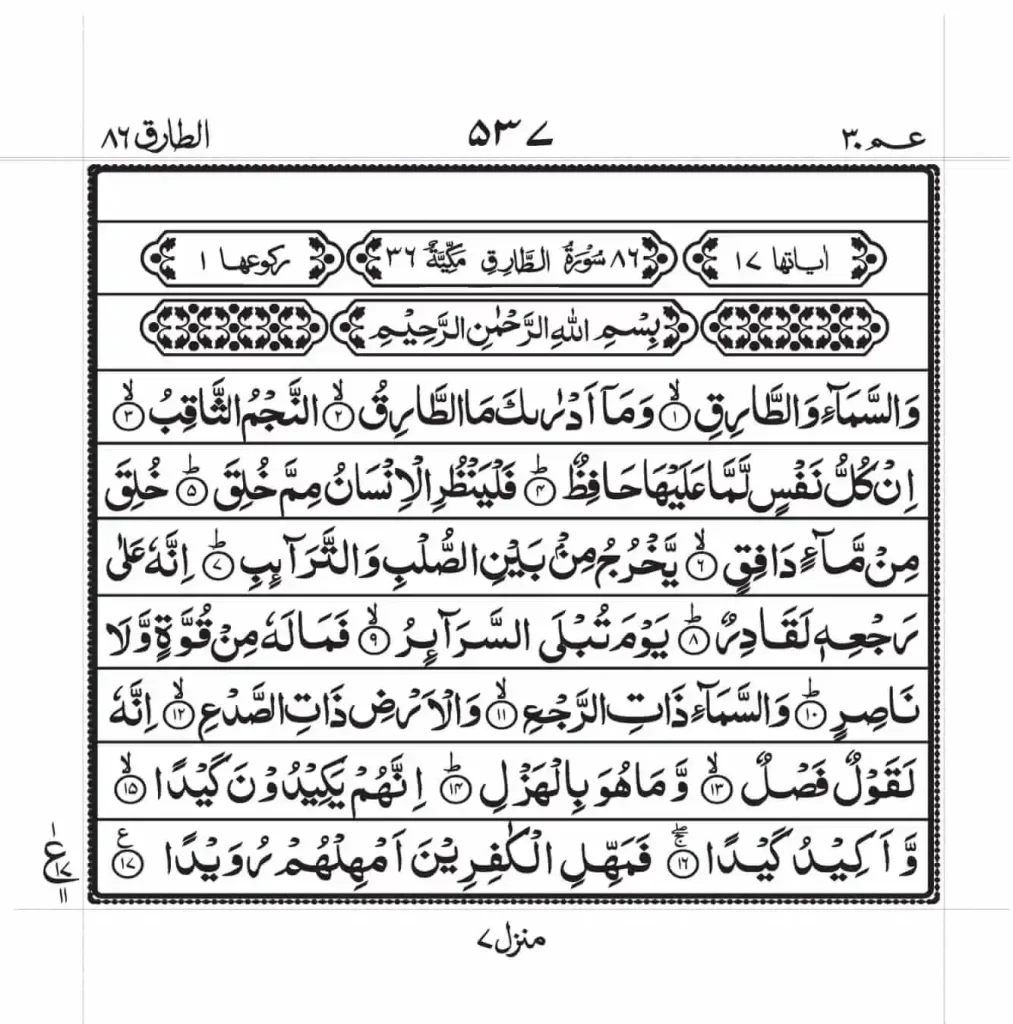 عـم ۳۰ ۵۳۷ الطارق ۸۶
اٰیاتها ۱۷ ۸۶ سُوْرَةُ الطَّارِقِ مَكِّيَّةٌ ۳۶ رکوعها ۱
بِسْمِ اللّٰهِ الرَّحْمٰنِ الرَّحِيْمِ
وَالسَّمَآءِ وَالطَّارِقِ ۙ﴿۱﴾ وَمَاۤ اَدْرٰىكَ مَا الطَّارِقُ ۙ﴿۲﴾ النَّجْمُ الثَّاقِبُ ۙ﴿۳﴾
اِنْ كُلُّ نَفْسٍ لَّمَّا عَلَيْهَا حَافِظٌ ؕ﴿۴﴾ فَلْيَنْظُرِ الْاِنْسَانُ مِمَّ خُلِقَ ؕ﴿۵﴾ خُلِقَ
مِنْ مَّآءٍ دَافِقٍ ۙ﴿۶﴾ يَّخْرُجُ مِنْۢ بَيْنِ الصُّلْبِ وَالتَّرَآئِبِ ؕ﴿۷﴾ اِنَّهٗ عَلٰى
رَجْعِهٖ لَقَادِرٌ ؕ﴿۸﴾ يَوْمَ تُبْلَى السَّرَآئِرُ ۙ﴿۹﴾ فَمَا لَهٗ مِنْ قُوَّةٍ وَّلَا
نَاصِرٍ ؕ﴿۱۰﴾ وَالسَّمَآءِ ذَاتِ الرَّجْعِ ۙ﴿۱۱﴾ وَالْاَرْضِ ذَاتِ الصَّدْعِ ۙ﴿۱۲﴾ اِنَّهٗ
لَقَوْلٌ فَصْلٌ ۙ﴿۱۳﴾ وَّمَا هُوَ بِالْهَزْلِ ؕ﴿۱۴﴾ اِنَّهُمْ يَكِيْدُوْنَ كَيْدًا ۙ﴿۱۵﴾
وَّاَكِيْدُ كَيْدًا ۚۖ﴿۱۶﴾ فَمَهِّلِ الْكٰفِرِيْنَ اَمْهِلْهُمْ رُوَيْدًا ﴿۱۷﴾ ع
۱
ع ۱۷
۱۱
منزل ۷